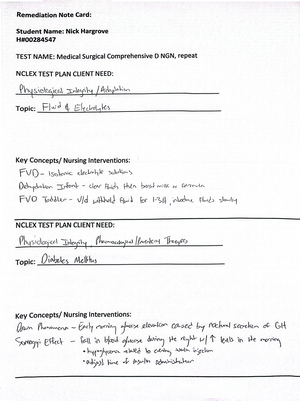 Remediation Note Card:
Student Name: Nick Hargrove
H#00284547
TEST NAME: Medical Surgical Comprehensive D NGN, repeat
NCLEX TEST PLAN CLIENT NEED:
Physiological Integrity/Adaptation
Topic: Fluid & Electrolytes
Key Concepts/ Nursing Interventions:
FVD - isotonic electrolyte solutions
Dehydration Infant - clear fluids then breast milk or formula
FVD Toddler - v/d withhold fluid for 1-3H, introduce fluids slowly
NCLEX TEST PLAN CLIENT NEED:
Physiological Integrity Pharmacological/Parenteral Therapies
Topic: Diabetes Mellitus
Key Concepts/ Nursing Interventions:
Dawn Phenomena - Early morning glucose elevation caused by nocturnal secretion of GH
Somogyi Effect - Fall in blood glucose during the night w/ ↑ levels in the morning
• hypoglycemia related to evening insulin injection
• adjust time of insulin administration